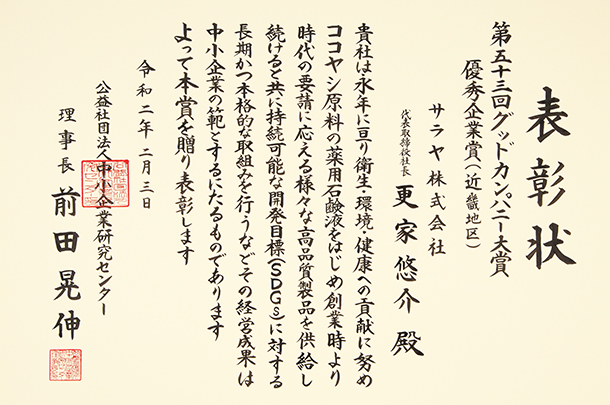 表彰状
第五十三回グッドカンパニー大賞
優秀企業賞(近畿地区)
サラヤ株式会社
代表取締役社長 更家悠介 殿
貴社は永年に亘り衛生・環境・健康への貢献に努め
ココヤシ原料の薬用石鹸液をはじめ創業時より
時代の要請に応える様々な高品質製品を供給し
続けると共に持続可能な開発目標(SDGs)に対する
長期かつ本格的な取組みを行うなどその経営成果は
中小企業の範とするにたるものであります
よって本賞を贈り表彰します
令和二年二月三日
公益社団法人中小企業研究センター
理事長 前田晃伸